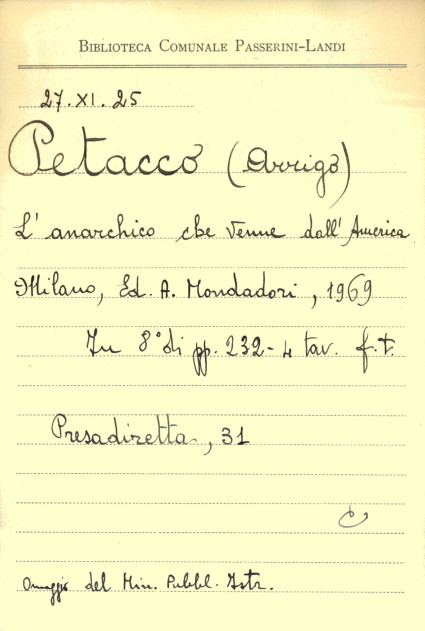 BIBLIOTECA COMUNALE PASSERINI-LANDI
27.XI.25
Petacco (Arrigo)
L'anarchico che venne dall'America
Milano, Ed. A. Mondadori, 1969
In 8° di pp. 232-4 tav. f.t.
Presadiretta, 31
Omaggio del Min. Pubbl. Istr.